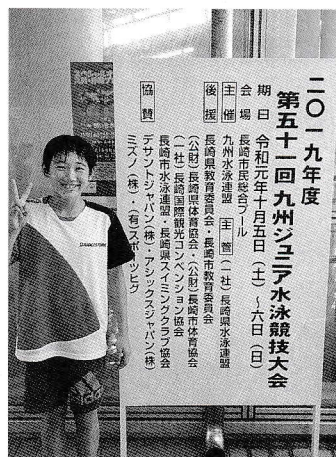 二〇一九年度
第五十一回 九州ジュニア水泳競技大会
期日 令和元年十月五日(土)～六日(日)
会場 長崎市民総合プール
主催 九州水泳連盟 主管 (一社)長崎県水泳連盟
後援 長崎県教育委員会・長崎市教育委員会
(公財)長崎県体育協会・(公財)長崎市体育協会
(一社)長崎国際観光コンベンション協会
長崎市水泳連盟・長崎県スイミングクラブ協会
協賛 デサントジャパン(株)・アシックスジャパン(株)
ミズノ(株)・(有)スポーツヒグ